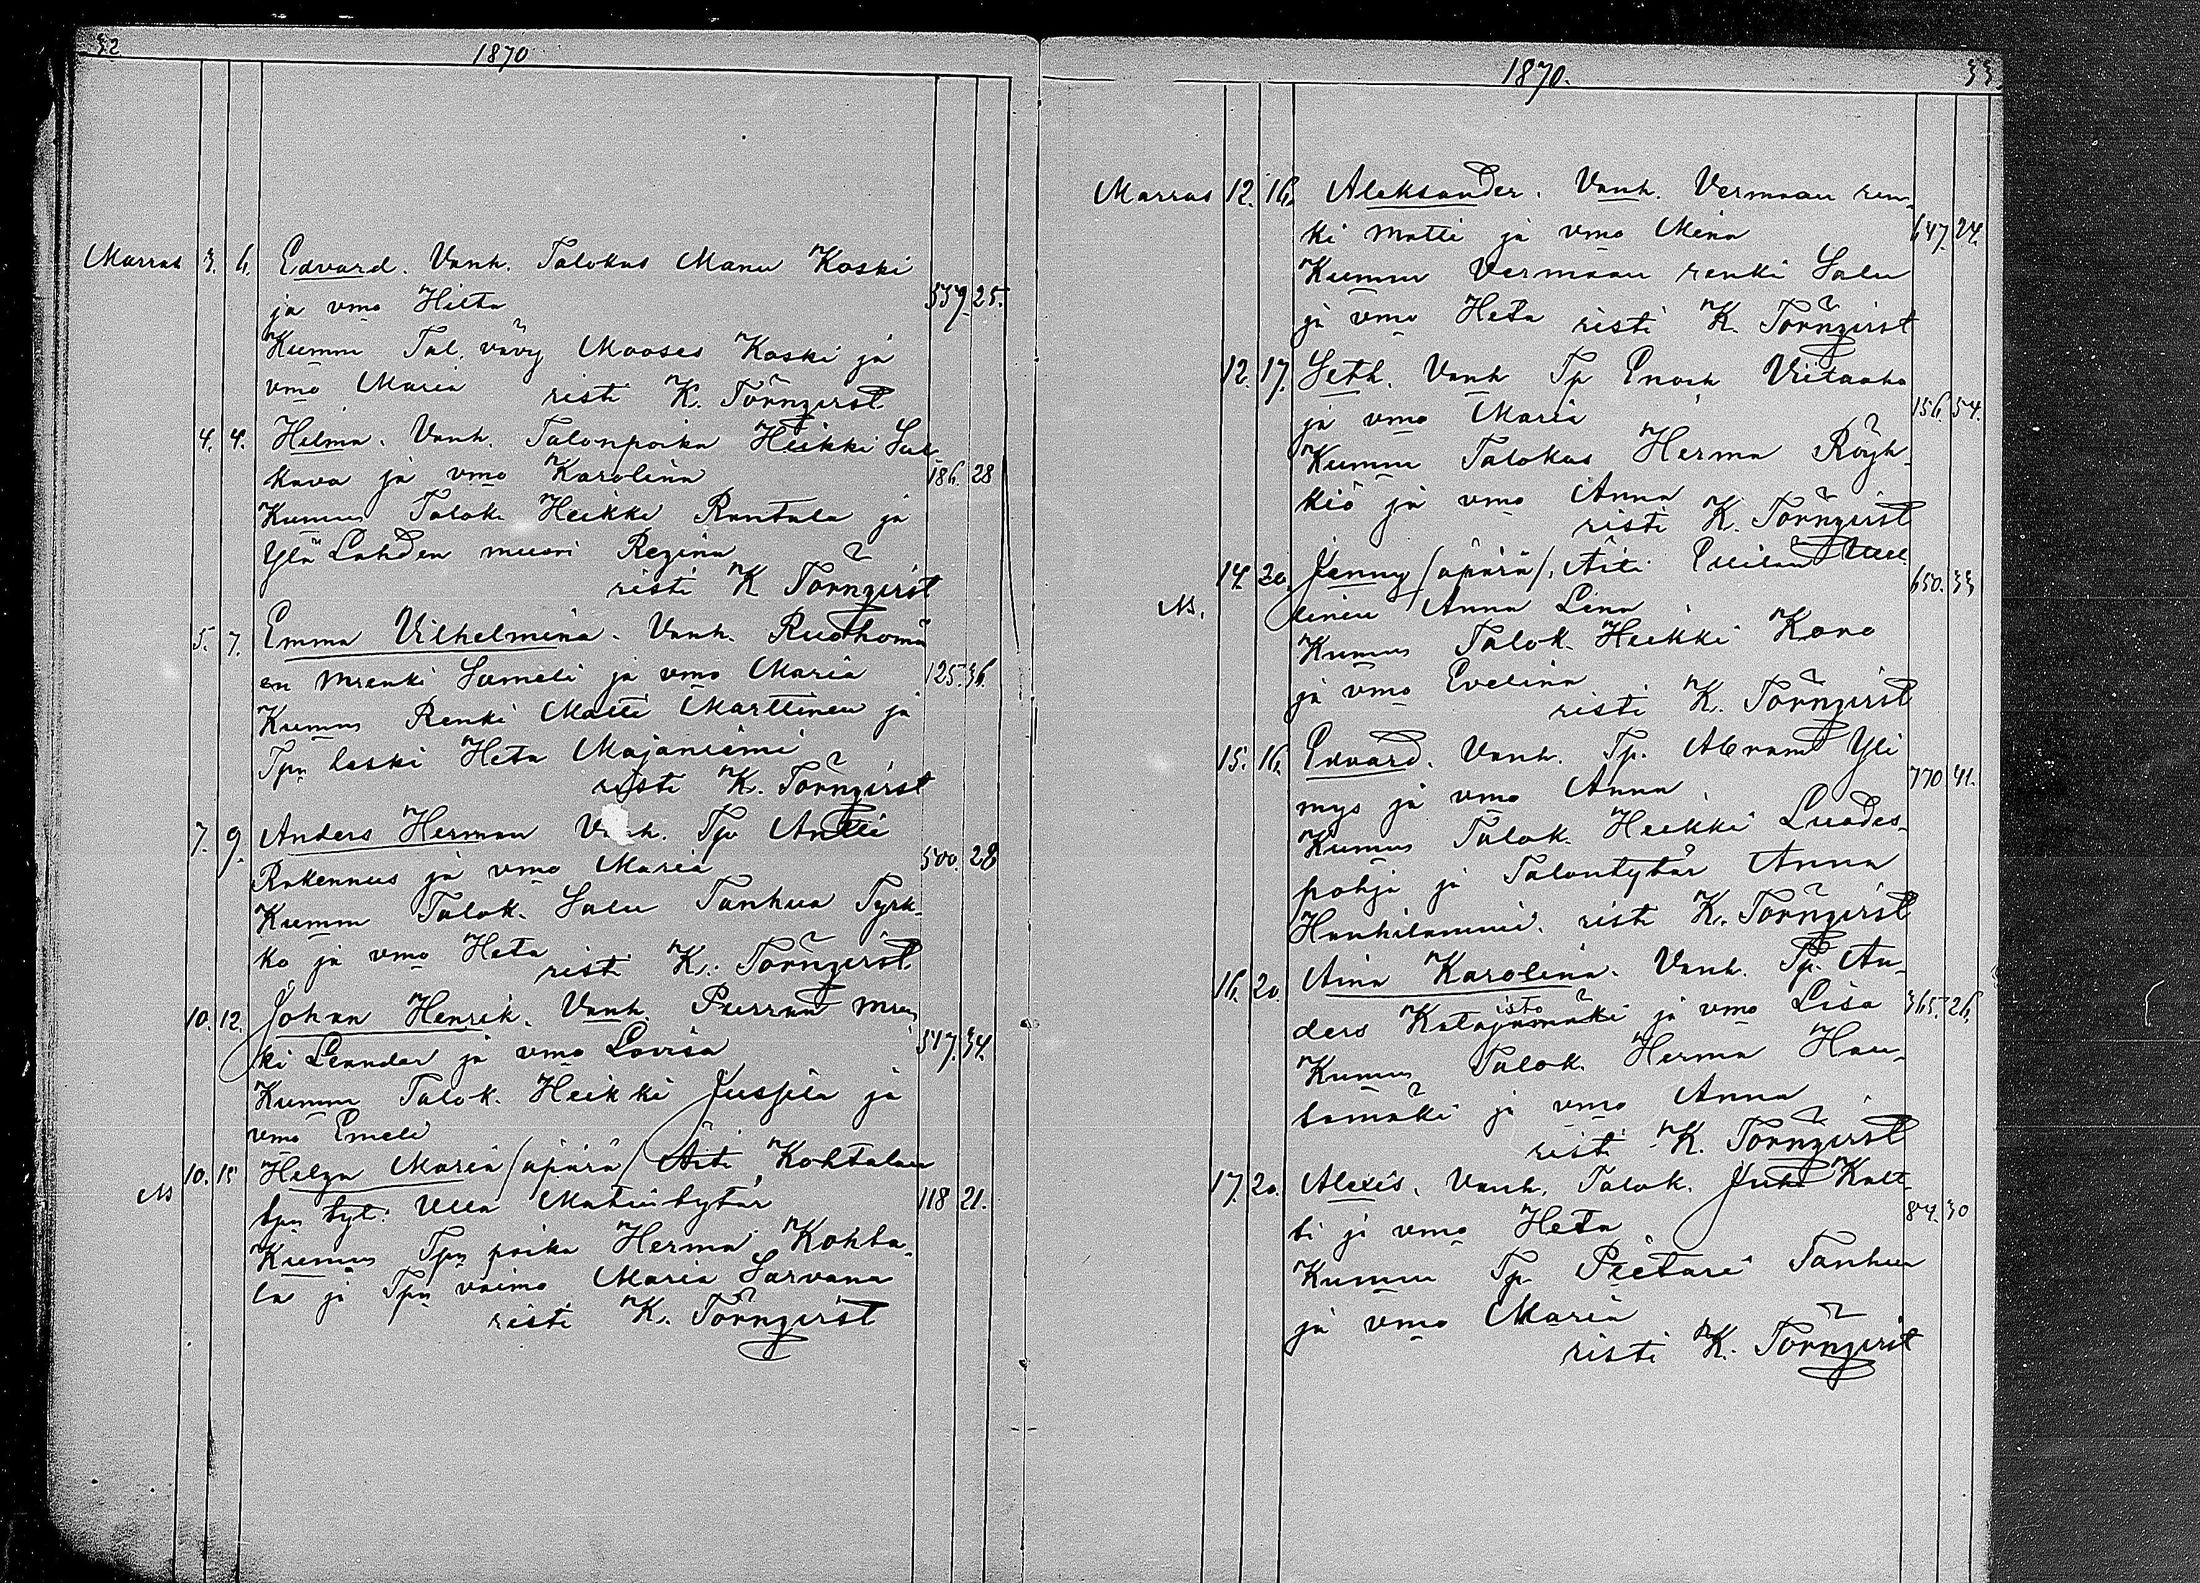 32 1870
Marras 3. 6. Edvard. Vanh. Talokas Manu Koski
ja vmo Hilta 559. 25.
Kummi Tal. vävy Mooses Koski ja
vmo Maria risti K. Törnqvist
4. 4. Hilma. Vanh. Talonpoika Heikki Sal
kava ja vmo Karolina 186. 28
Kummi Talok. Heikki Rantala ja
Ylä Lahden muori Regina
risti K Törnqvist
5. 7. Emma Vilhelmina. Vanh. Ruohomä
en mrenki Sameli ja vmo Maria 125. 36.
Kummi Renki Matti Marttinen ja
Tpn leski Heta Majaniemi
risti K. Törnqvist
7. 9. Anders Herman Vanh. Tp Antti
Rakennus ja vmo Maria 500. 28
Kummi Talok. Salu Tanhua Tyrk-
kö ja vmo Heta
risti K. Törnqvist
10. 12. Johan Henrik. Vanh. Purran mren
ki Leander ja vmo Lovisa 517. 34.
Kummi Talok. Heikki Jussila ja
vmo Emeli
N 10. 15 Helga Maria /äpärä/ Äiti Kohtalan
tpn tyt: Ulla Matintytär 118 21.
Kummi Tpn poika Herma Kohta-
la ja Tpn vaimo Maria Sarvana
risti K. Törnqvist
1870. 33
Marras 12. 16. Aleksander. Vanh. Vermaan ren-
ki Matti ja vmo Mina 647. 24.
Kummi Vermaan renki Salu
ja vmo Heta risti K. Törnqvist
12. 17. Seth. Vanh Tp Enock Viitaaho
ja vmo Maria 156. 54.
Kummi Talokas Herma Röyh-
kiö ja vmo Anna
risti K. Törnqvist
N. 14. 20. Jenny /äpärä/. Äiti
Anna Lena 650. 33
Kummi Talok. Heikki Kono
ja vmo Evelina
risti K. Törnqvist
15. 16. Edvard. Vanh. Tp. Abram Yli
mys ja vmo Anna 770 41.
Kummi Talok. Heikki Luodes-
pohja ja Talontytär Anna
Hanhilammi. risti K. Törnqvist
16. 20. Aina Karolina. Vanh. Tp. An-
isto
ders Katajamäki ja vmo Lisa 365. 26.
Kummi Talok. Herma Hau-
tamäki ja vmo Anna
risti K. Törnqvist
17. 20. Alexis. Vanh. Talok. Juha Kalt
ti ja vmo Heta 84. 30
Kummi Tp. Pietari Tanhua
ja vmo Maria
risti K. Törnqvist